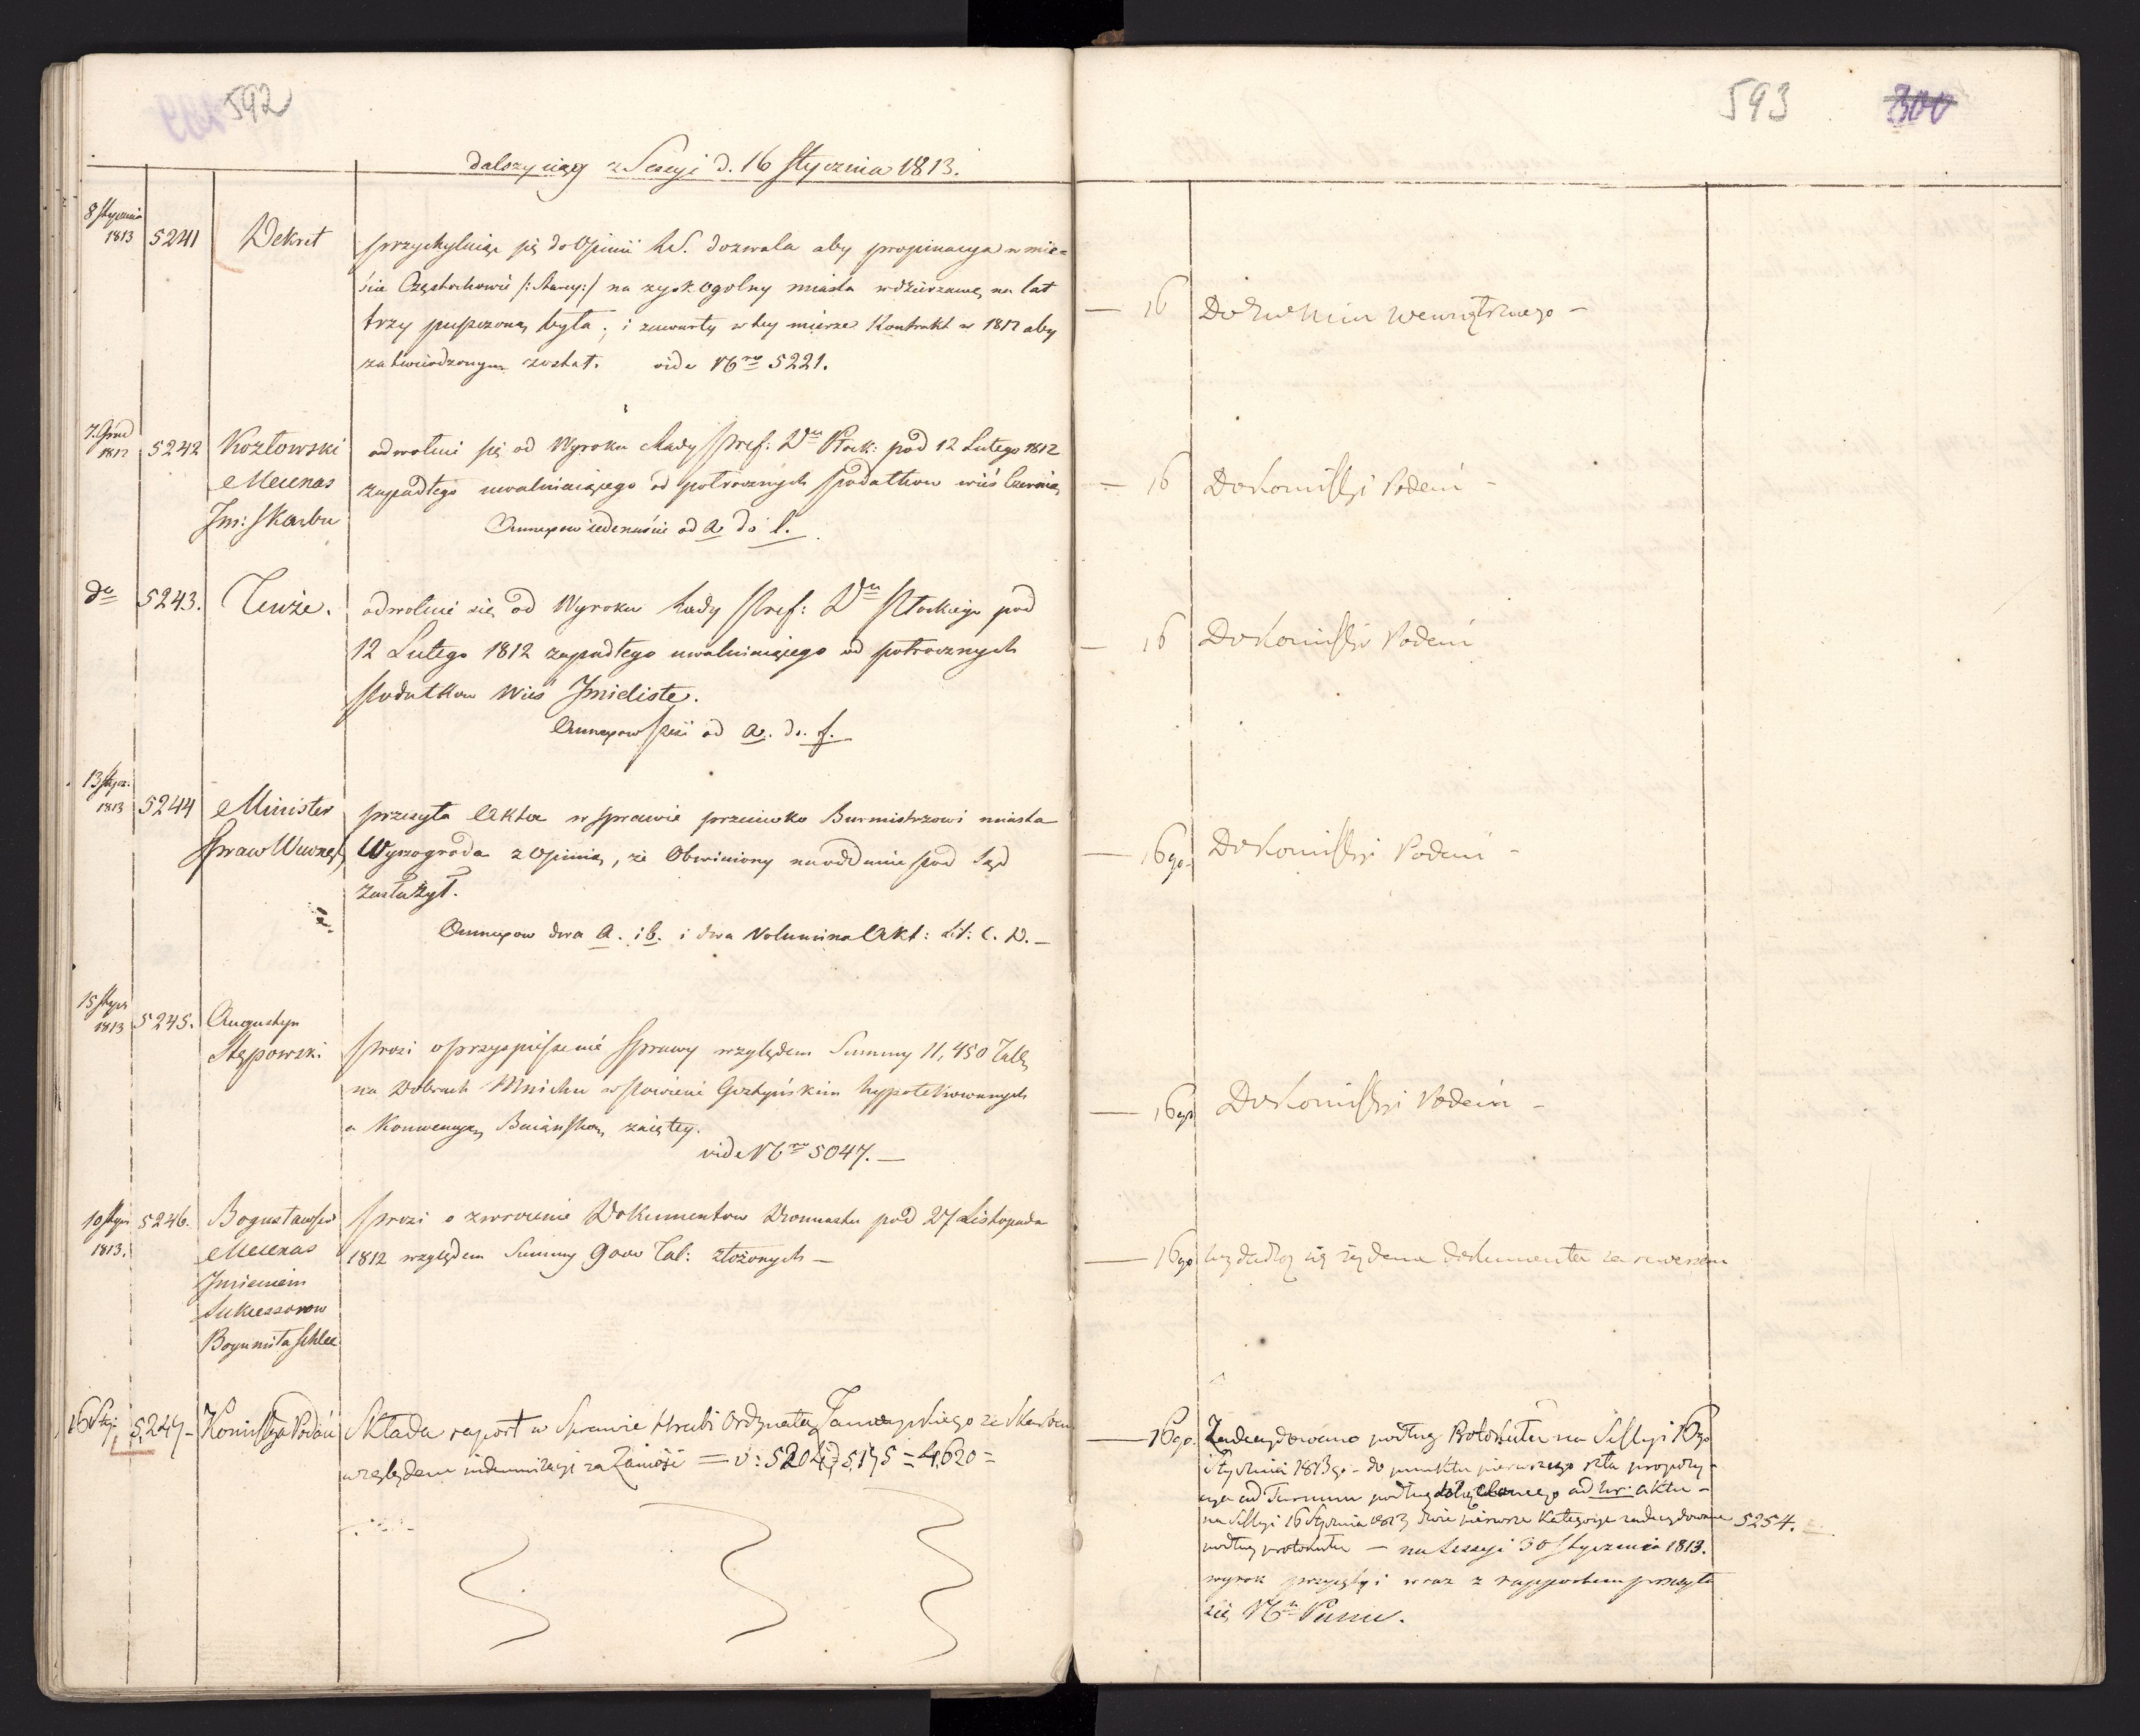 592
dalszy ciąg z Sessyi d. 16 Stycznia 1813.
8 Stycznia
1813
5241
Dekret
przychylaiąc się do Opinii R.S. dozwala aby propinacya w mie=
ście Częstochowie /: Starey :/ na zysk ogolny miasta w dzierzawę na lat
trzy puszczoną była; i zawarty w tey mierze Kontrakt w 1812 aby
zatwierdzonym został. vide Nro 5221.
7. Grud
1812
5242
Kozłowski
Mecenas
Im: Skarbu
odwołuie się od Wyroku Rady Pref: Dtu Płock: pod 12 Lutego 1812
zapadłego uwalniaiącego od potrocznych Podatkow wieś
Annexow iedenaście od a do l.
do
5243.
Tenże.
odwołuie się od Wyroku Rady Pref: Dtu Płockiego pod
12 Lutego 1812 zapadłego uwalniaiącego od potrocznych
Podatkow Wieś Imieliste.
Annexow sześć od a. do. f.
13 Stycz.
1813
5244
Minister
Spraw Wewnęt
przesyła Akta w sprawie przeciwko Burmistrzowi miasta
Wyszogroda z Opinią, że Obwiniony na oddanie pod Sąd
zasłużył.
Annexow dwa a. i b. i dwa Volumina Akt: Lit: C. D. —
15 Stycz
1813
5245.
Augustyn
Stępowski
Prosi o przyspieszenie Sprawy względem Summy 11,450 Tall,
na Dobrach Mnichu w Powiecie Gostyńskim hypotekowanych
a Konwencyą Baiońską zaiętey.
vide Nro 5047. —
10 Stycz
1813.
5246.
Bogusławski
Mecenas
Imieniem
Sukcessorow
Bogumiła
Prosi o zwrocenie Dokumentow pod 27 Listopada
1812 względem Summy 9000 Tal: złożonych —
16 Sty:
5,247 -
Komissya Podań
Składa raport w Sprawie Hrabi Ordynata Zamoyskiego ze Skarbem
względem indemnizacyi za Zamość = v: 5204, 5,195 = 4,620 =
593
300
— 16
Do wewnętrznego -
— 16
Do Komissyi Podań -
— 16
Do Komissyi Podań
— 16go.
Do Komissyi Podań -
— 16go
Do Komissyi Podań -
— 16go
się żądane dokumenta za rewersem
— 16go.
Zadecydowano podług Protokułu na Sessyi 16go
Stycznia 1813go - do punktu pierwszego
ad podług ad aktu -
na Sessyi 16 Stycznia 1813 dwie pierwsze Kategorye zadecydowane
5254.
podług protokułu — na Sessyi 30 Stycznia 1813.
wyrok przyięty i wraz z rapportem przesyła
się Panu.